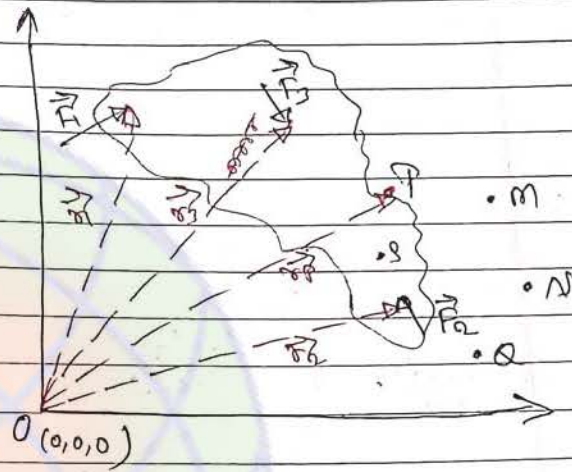 F⃗₁
F⃗₃
P
r⃗₁
r⃗₃
• M
• S
r⃗p
• N
F⃗₂
r⃗₂
• Q
O (0,0,0)